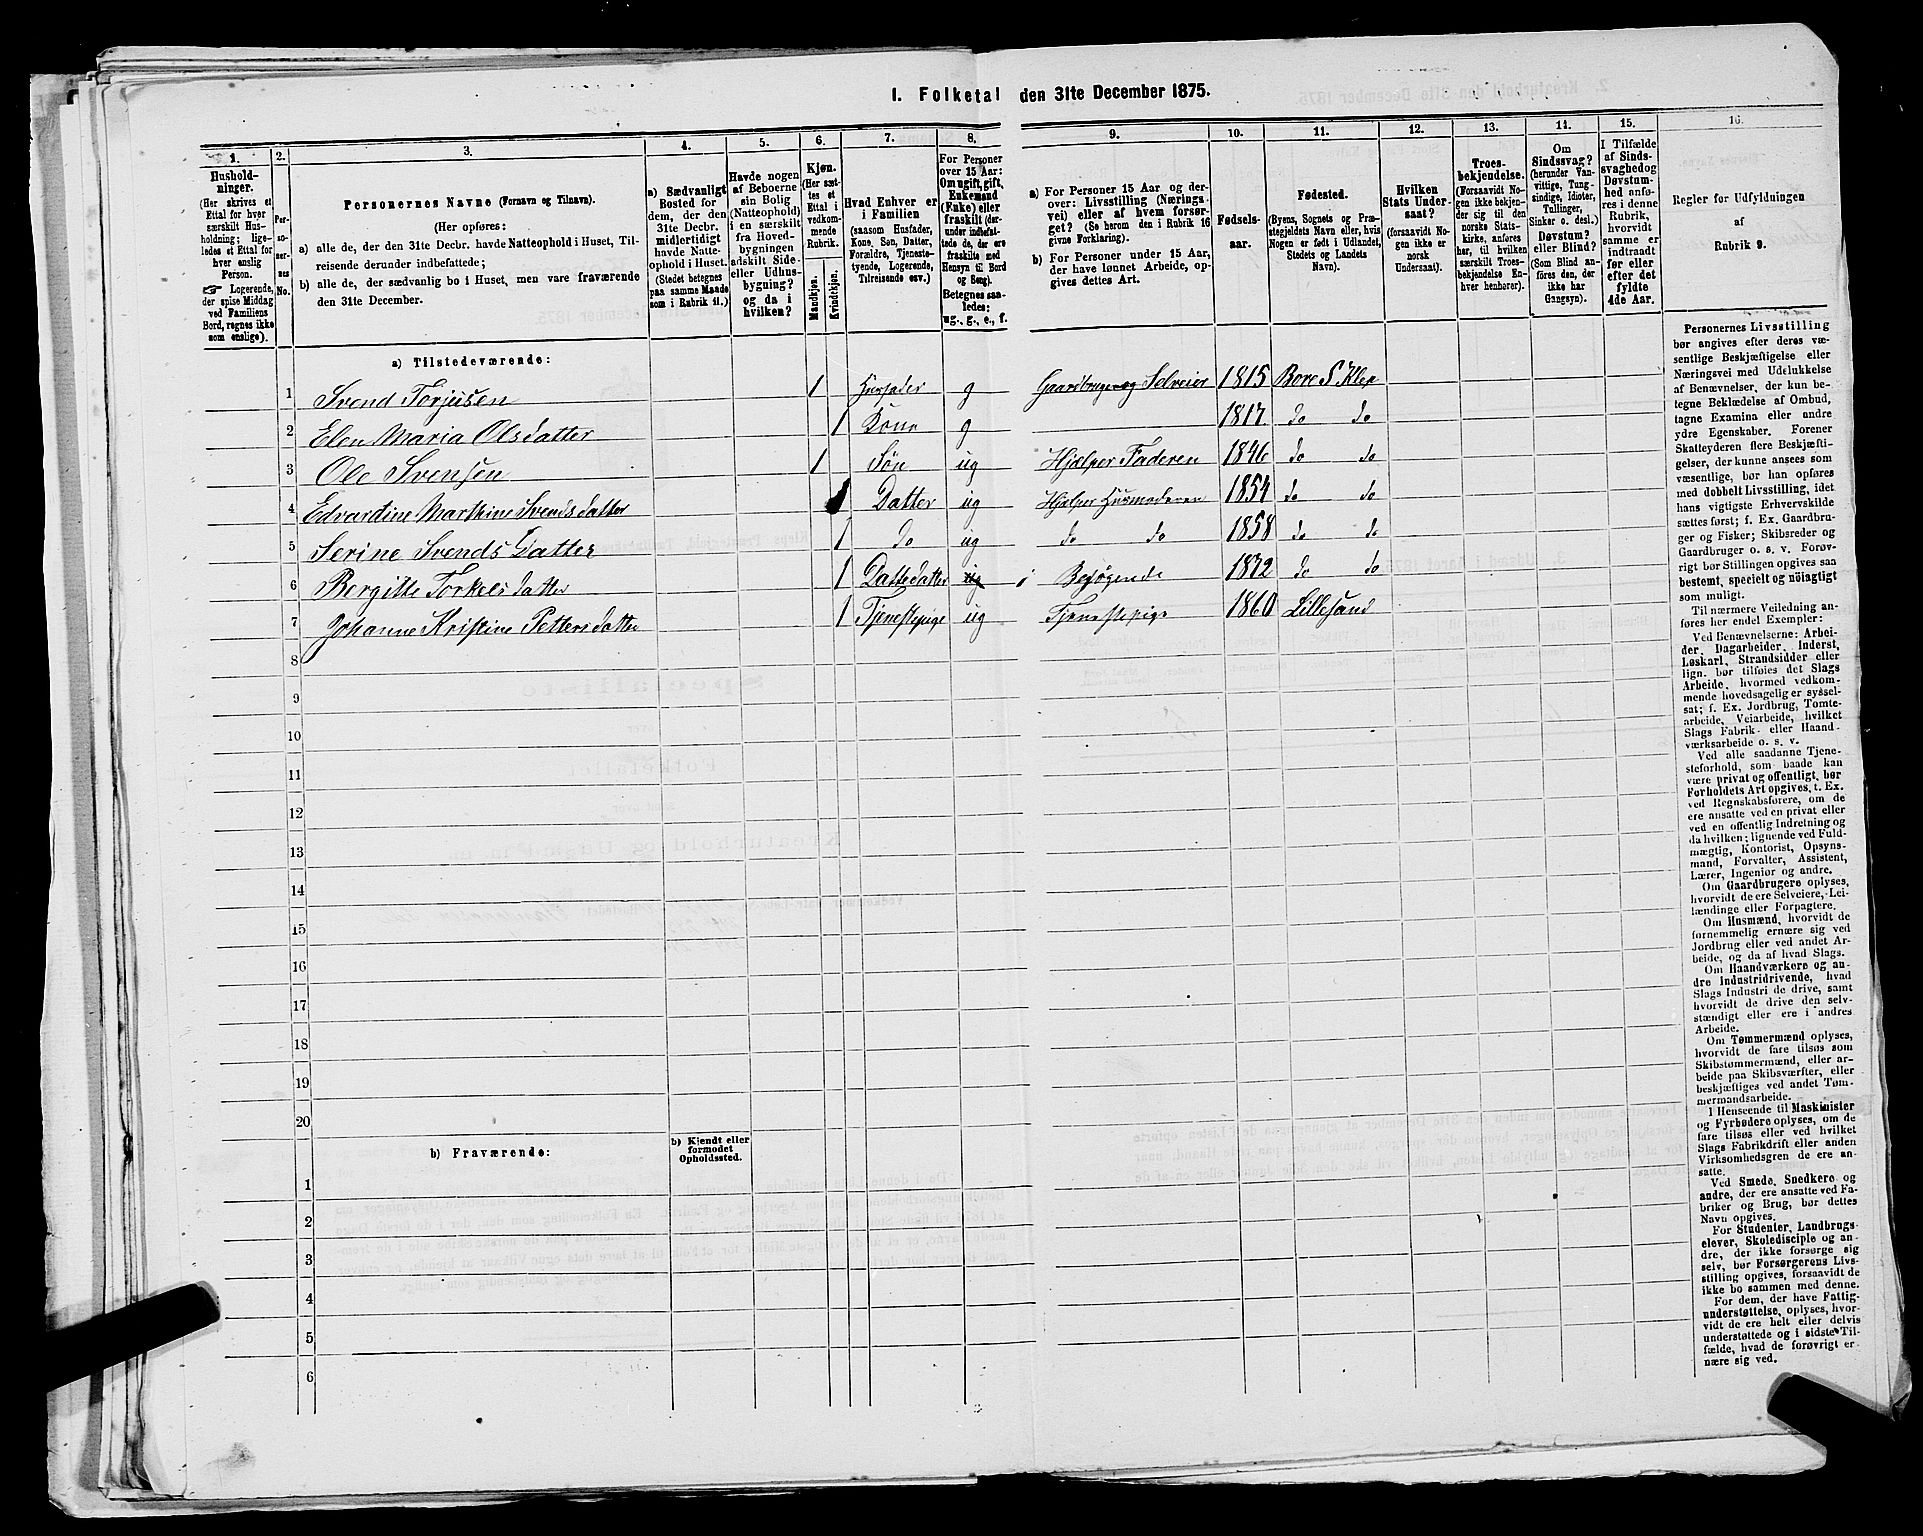 I. Folketal den 31te December 1875.
1. 2. 3. 4. 5. 6. 7. 8. 9. 10. 11. 12. 13. 14. 15. 16.
Husholdninger.
(Her skrives et
Ettal for hver
særskilt Husholdning; ligeledes
et Ettal for
hver enslig
Person.
☞ Logerende,
der spise Middag
ved Familiens
Bord, regnes ikke
som enslige).
Personernes No.
Personernes Navne (Fornavn og Tilnavn).
(Her opføres:
a) alle de, der den 31te Decbr. havde Natteophold i Huset, Tilreisende derunder indbefattede;
b) alle de, der sædvanlig bo i Huset, men vare fraværende
den 31te December.
a) Sædvanligt
Bosted for
dem, der den
31te Decbr.
midlertidigt
havde Natteophold i Huset.
(Stedet betegnes
paa samme Maade
som i Rubrik 11.)
Havde nogen
af Beboerne
sin Bolig
(Natteophold)
i en særskilt
fra Hovedbygningen
adskilt Side-
eller Udhusbygning?
og da i
hvilken?
Kjøn.
(Her sættes et
Ettal i
vedkommende
Rubrik.
Mandkjøn.
Kvindekjøn.
Hvad Enhver er
i Familien
(saasom Husfader,
Kone, Søn, Datter,
Forældre, Tjenestetyende, Logerende,
Tilreisende osv.)
For Personer
over 15 Aar:
Om ugift, gift,
Enkemand
(Enke) eller
fraskilt (derunder indbefattede de, der ere
fraskilte med
Hensyn til Bord
og Seng).
Betegnes saaledes:
ug., g., e., f.
a) For Personer 15 Aar og derover: Livsstilling (Næringsvei) eller af hvem forsørget? (Se herom den i Rubrik 16
givne Forklaring).
b) For Personer under 15 Aar,
der have lønnet Arbeide, opgives dettes Art.
Fødselsaar.
Fødested.
(Byens, Sognets og Præstegjeldets Navn eller, hvis
Nogen er født i Udlandet,
Stedets og Landets
Navn).
Hvilken
Stats Undersaat?
(forsaavidt Nogen ikke er
norsk
Undersaat).
Troesbekjendelse.
(Forsaavidt Nogen ikke bekjender sig til den
norske Statskirke, anføres
her, til hvilken
særskilt Troesbekjendelse Enhver henhører).
Om
Sindssvag?
(herunder Vanvittige, Tungsindige, Idioter,
Tullinger,
Sinker o. desl.)
Døvstum?
eller Blind?
(Som Blind anføres den, der
ikke har
Gangsyn).
I Tilfælde
af Sindssvaghed og
Døvstumhed anføres i denne
Rubrik,
hvorvidt
samme er
indtraadt
før eller
efter det
fyldte
4de Aar.
Regler for Udfyldningen
af
Rubrik 9.
a) Tilstedeværende:
1 Svend Torjusen 1 Husfader g Gaardbruger og Selveier 1815 Bore S Klep
2 Elen Maria Olsdatter 1 Kone g 1817 do do
3 Ole Svensen 1 Søn ug Hjælper Faderen 1846 do do
4 Edvardine Marthine Svendsdatter 1 Datter ug Hjelper Husmoderen 1854 do do
5 Serine Svends Datter 1 do ug do do 1858 do do
6 Bergitte Torkelsdatter 1 Dattedatter ug i Besøgende 1872 do do
7 Johanne Kristine Pettersdatter 1 Tjenestepige ug Tjenestepige 1860 Lillesand
8
9
10
11
12
13
14
15
16
17
18
19
20
b) Fraværende:
b) Kjendt eller
formodet
Opholdssted.
1
2
3
4
5
6
Personernes Livsstilling
bør angives efter deres væsentlige Beskjæftigelse eller
Næringsvei med Udelukkelse
af Benævnelser, der kun betegne Beklædelse af Ombud,
tagne Examina eller andre
ydre Egenskaber. Forener
Skatteyderen flere Beskjæftigelser, der kunne ansees som
væsentlige, bør han opføres
med dobbelt Livsstilling, idet
hans vigtigste Erhvervskilde
sættes først; f. Ex. Gaardbruger og Fisker; Skibsreder og
Gaardbruger o. s. v. Forøvrigt bør Stillingen opgives saa
bestemt, specielt og nøiagtigt
som muligt.
Til nærmere Veiledning anføres her endel Exempler:
Ved Benævnelserne: Arbeider, Dagarbeider, Inderst,
Løskarl, Strandsidder eller
lign. bør tilføies det Slags
Arbeide, hvormed vedkommende hovedsagelig er sysselsat; f. Ex. Jordbrug, Tomtearbeide, Veiarbeide, hvilket
Slags Fabrik- eller Haandværksarbeide o. s. v.
Ved alle saadanne Tjenesteforhold, som baade kan
være privat og offentligt, bør
Forholdets Art opgives, t. Ex.
ved Regnskabsførere, om de
ere ansatte ved en privat eller
ved en offentlig Indretning og
da hvilken; lignende ved Fuldmægtig, Kontorist, Opsynsmand, Forvalter, Assistent,
Lærer, Ingeniør og andre.
Om Gaardbrugere oplyses,
hvorvidt de ere Selveiere, Leilændinge eller Forpagtere.
Om Husmænd, hvorvidt de
fornemmelig ernære sig ved
Jordbrug eller ved andet Arbeide, og da af hvad Slags.
Om Haandværkere og andre Industridrivende, hvad
Slags Industri de drive, samt
hvorvidt de drive den selvstændigt eller ere i andres
Arbeide.
Om Tømmermænd oplyses,
hvorvidt de fare tilsøs som
Skibstømmermænd, eller arbeide paa Skibsværfter, eller
beskjæftiges ved andet Tømmermandsarbeide.
I Henseende til Maskinister
og Fyrbødere oplyses, om de
fare tilsøs eller ved hvilket
Slags Fabrikdrift eller anden
Virksomhedsgren de ere ansatte.
Ved Smede, Snedkere og
andre, der ere ansatte ved Fabriker og Brug, bør dettes
Navn opgives.
For Studenter, Landbrugselever, Skoledisciple og andre, der ikke forsørge sig
selv, bør Forsørgerens Livsstilling opgives, forsaavidt de
ikke bo sammen med denne.
For dem, der have Fattigunderstøttelse, oplyses, hvorvidt de ere helt eller delvis
understøttede og i sidste Tilfælde, hvad de forøvrigt ernære sig ved.